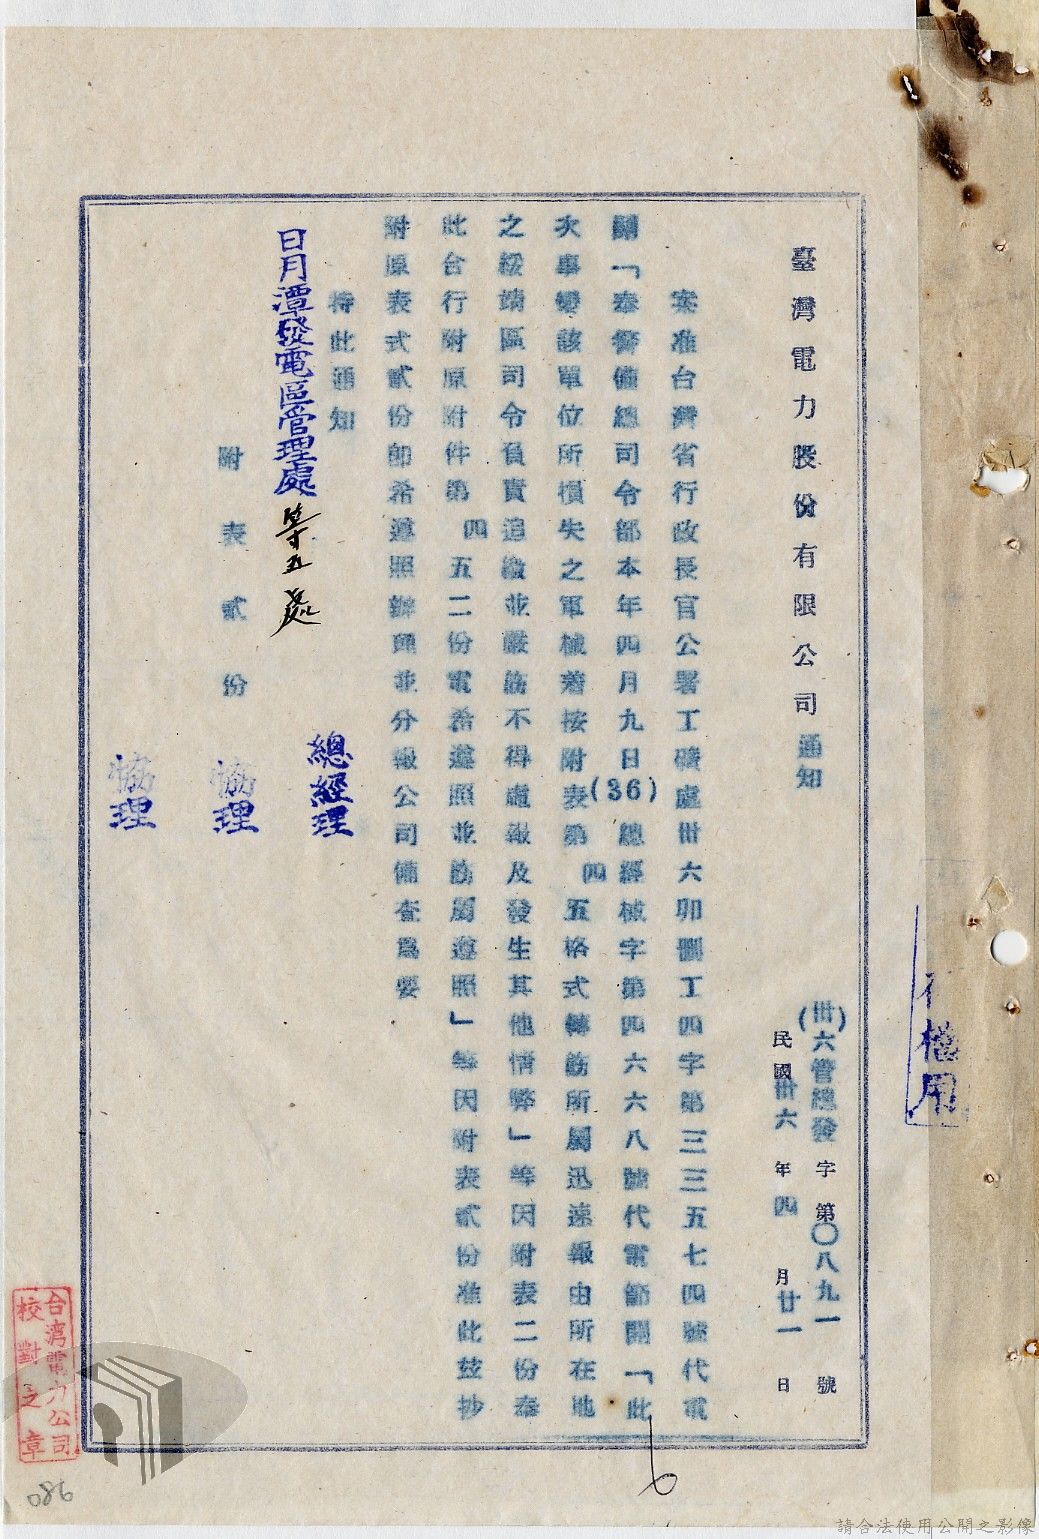 臺灣電力股份有限公司通知
(卅六管總發字第〇八九一號
民國卅六年四月廿一日
案准台灣省行政長官公署工礦處卅六卯刪工四字第三三五七四號代電
開「奉警備總司令部本年四月九日(36)總經械字第四六六八號代電節開「此
次事變該單位所損失之軍械着按附表第四五格式轉飭所屬迅速報由所在地
之綏靖區司令負責追繳並嚴飭不得虛報及發生其他情弊」等因附表二份奉
此台行附原附件第四五二份電希遵照並飭屬遵照」等因附表貳份准此茲抄
附原表式貳份即希遵照辦理並分報公司備查爲要
特此通知
日月潭發電區管理處等五處
附表貳份
總經理
協理
協理
台湾電力公司
校對之章
086
6
用
請合法使用公開之影像